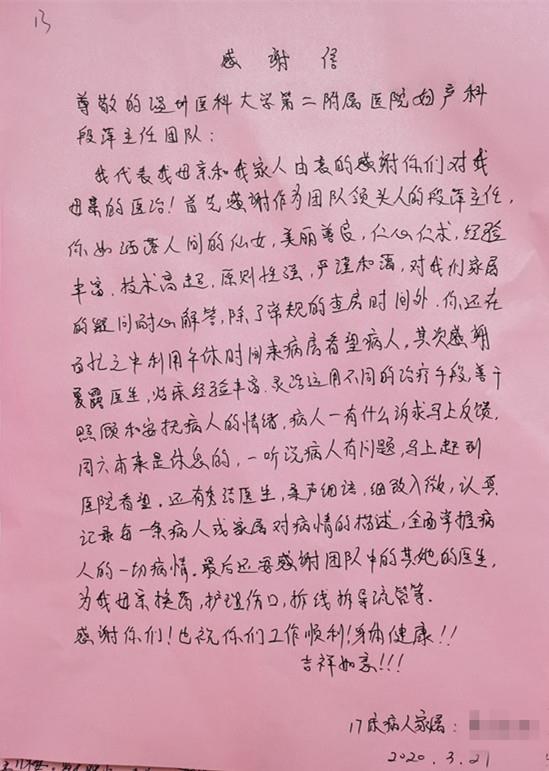 13
感谢信
尊敬的温州医科大学第二附属医院妇产科
段萍主任团队:
我代表我母亲和我家人由衷的感谢你们对我
母亲的医治!首先感谢作为团队领头人的段萍主任,
你如洒落人间的仙女,美丽善良,仁心仁术,经验
丰富,技术高超,原则性强,严谨和蔼,对我们家属
的疑问耐心解答,除了常规的查房时间外,你还在
百忙之中利用午休时间来病房看望病人,其次感谢
夏露医生,临床经验丰富,灵活运用不同的治疗手段,善于
照顾和安抚病人的情绪,病人一有什么诉求马上反馈,
周六本来是休息的,一听说病人有问题,马上赶到
医院看望.还有医生,柔声细语,细致入微,认真
记录每一条病人或家属对病情的描述,全面掌握病
人的一切病情.最后还要感谢团队中的其他的医生,
为我母亲换药,护理伤口,拆线拆导流管等.
感谢你们!也祝你们工作顺利!身体健康!!
吉祥如意!!!
17床病人家属:
2020.3.21